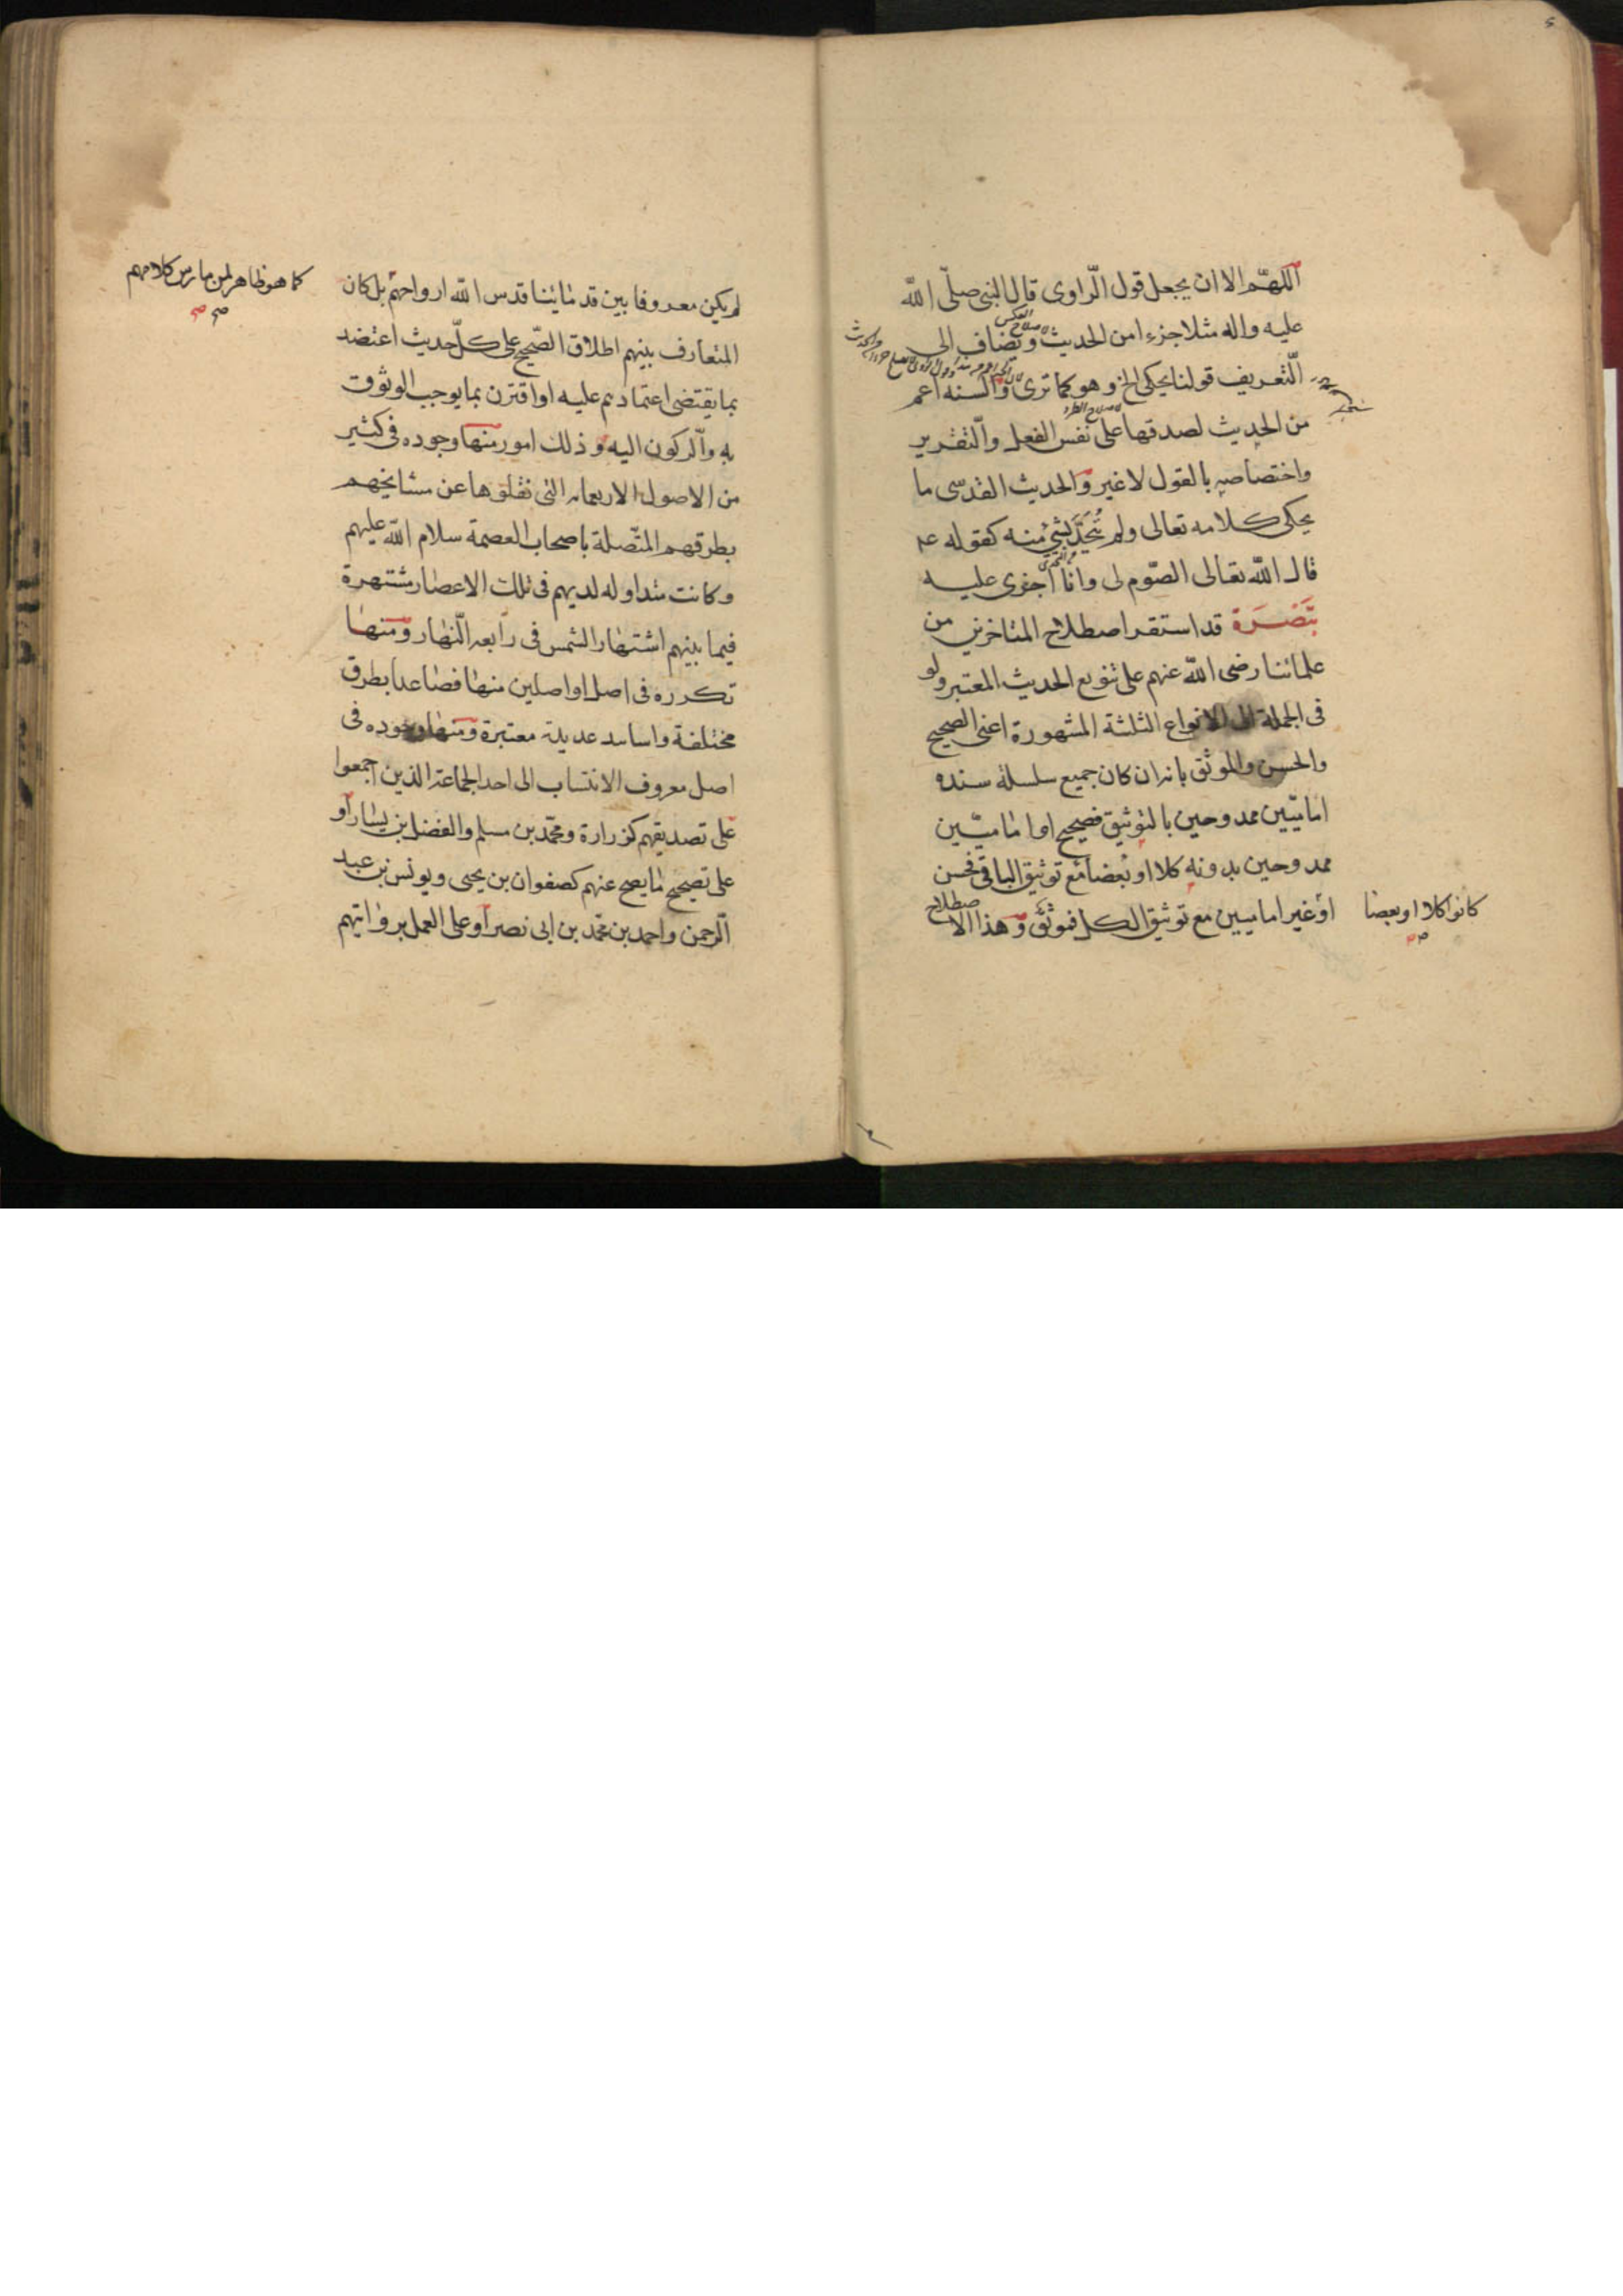 اللهمّ الا ان يجعل قول الرّاوى قال النبى صلّى اللّه
عليه واله مثلا جزءا من الحديث وتضاف الى
التّعريف قولنا يحكى الخ وهو كما ترى والسنه اعم
من الحديث لصدقها على نفس الفعل والتّقرير
واختصاصه بالقول لا غير والحديث القدسى ما
يحكى كلامه تعالى ولم يُتَحَدَّ بشئ منه كقوله عم
قال اللّه تعالى الصّوم لى وانا اجزى عليه
تَبْصَرَة قد استقر اصطلاح المتاخرين من
علمائنا رضى اللّه عنهم على تنويع الحديث المعتبر ولو
فى الجملة الى الانواع الثلثة المشهورة اعنى الصحيح
والحسن والموثق بانه ان كان جميع سلسلة سنده
اماميّين ممدوحين بالتوثيق فصحيح او اماميّين
ممدوحين بدونه كلا او بعضا مع توثيق الباقى فحسن
او غير اماميين مع توثيق الكل فموثق وهذا الاصطلاح
كانوا كلا او بعضا
لم يكن معروفا بين قدمائنا قدس اللّه ارواحهم بل كان
كما هو ظاهر لمن مارس كلامهم
المتعارف بينهم اطلاق الصّحيح على كلّ حديث اعتضد
بما يقتضى اعتمادهم عليه او اقترن بما يوجب الوثوق
به والرّكون اليه وذلك امور منها وجوده فى كثير
من الاصول الاربعمائه التى نقلوها عن مشايخهم
بطرقهم المتّصلة باصحاب العصمة سلام اللّه عليهم
وكانت متداوله لديهم فى تلك الاعصار مشتهرة
فيما بينهم اشتهار الشمس فى رابعه النّهار ومنها
تكرره فى اصل او اصلين منها فصاعدا بطرق
مختلفة واسانيد عديدة معتبرة ومنها وجوده فى
اصل معروف الانتساب الى احد الجماعة الذين اجمعوا
على تصديقهم كزرارة ومحمّد بن مسلم والفضل بن يسار او
على تصحيح ما يصح عنهم كصفوان بن يحيى ويونس بن عبد
الرّحمن واحمد بن محمّد بن ابى نصر او على العمل برواتيهم